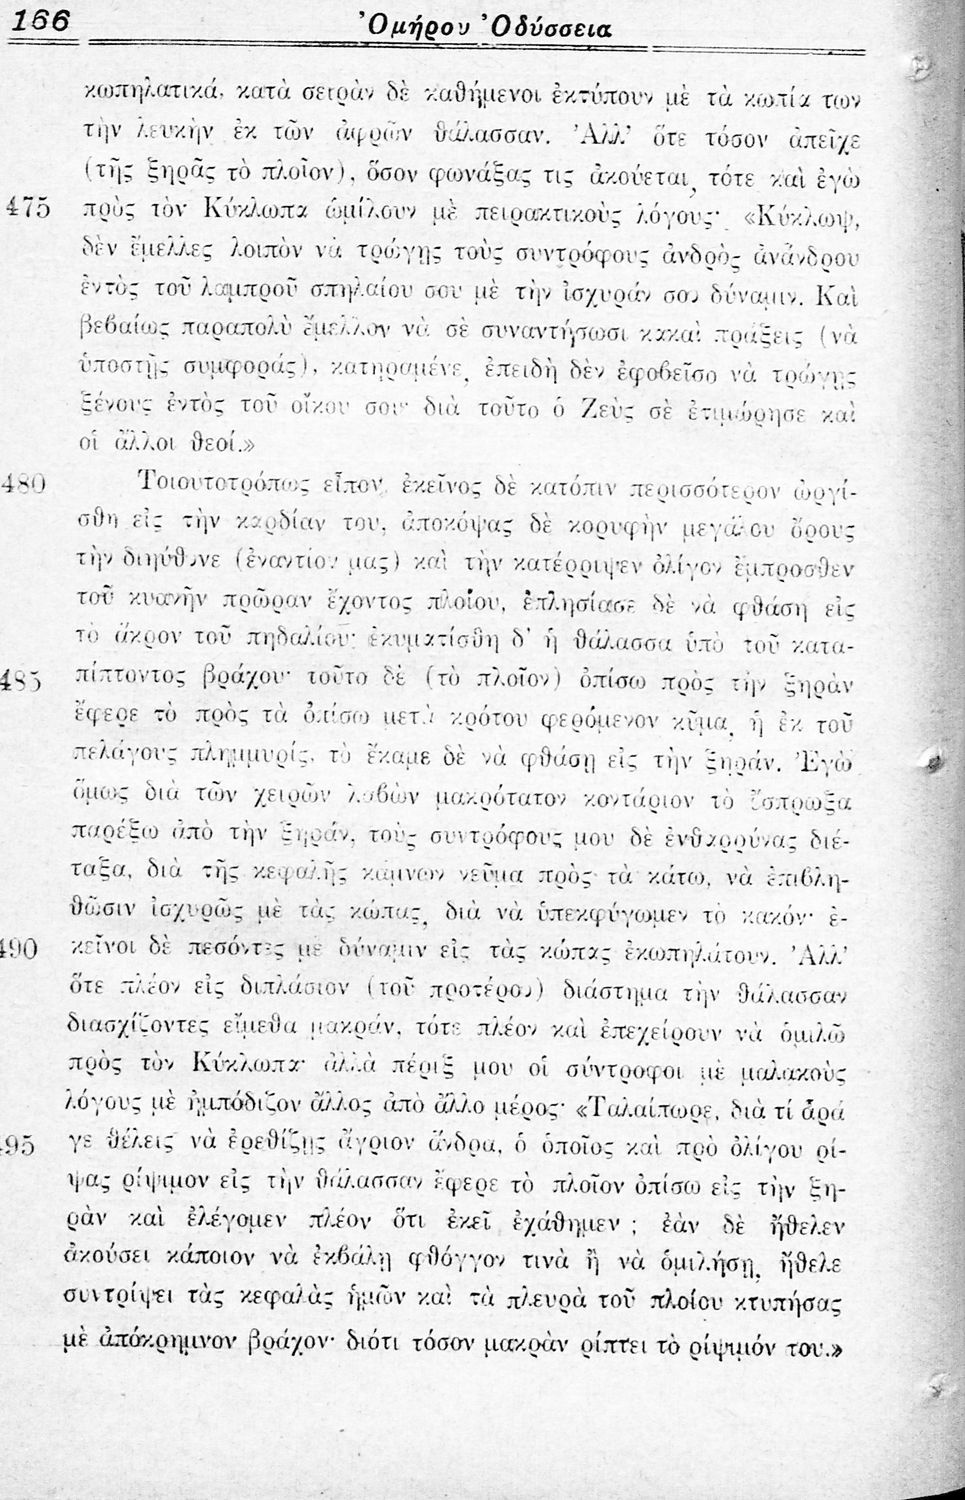 166 Ὁμήρου Ὀδύσσεια
κωπηλατικά, κατὰ σειρὰν δὲ καθήμενοι ἐκτύπουν μὲ τὰ κωπία των
τὴν λευκὴν ἐκ τῶν ἀφρῶν θάλασσαν. Ἀλλ' ὅτε τόσον ἀπεῖχε
(τῆς ξηρᾶς τὸ πλοῖον), ὅσον φωνάξας τις ἀκούεται, τότε καὶ ἐγὼ
475 πρὸς τὸν Κύκλωπα ὡμίλουν μὲ πειρακτικοὺς λόγους· «Κύκλωψ,
δὲν ἔμελλες λοιπὸν νὰ τρώγῃς τοὺς συντρόφους ἀνδρὸς ἀνάνδρου
ἐντὸς τοῦ λαμπροῦ σπηλαίου σου μὲ τὴν ἰσχυράν σου δύναμιν. Καὶ
βεβαίως παραπολὺ ἔμελλον νὰ σὲ συναντήσωσι κακαὶ πράξεις (νὰ
ὑποστῇς συμφοράς), κατηραμένε, ἐπειδὴ δὲν ἐφοβεῖσο νὰ τρώγῃς
ξένους ἐντὸς τοῦ οἴκου σου· διὰ τοῦτο ὁ Ζεὺς σὲ ἐτιμώρησε καὶ
οἱ ἄλλοι θεοί.»
480 Τοιουτοτρόπως εἶπον, ἐκεῖνος δὲ κατόπιν περισσότερον ὠργί-
σθη εἰς τὴν καρδίαν του, ἀποκόψας δὲ κορυφὴν μεγάλου ὄρους
τὴν διηύθυνε (ἐναντίον μας) καὶ τὴν κατέρριψεν ὀλίγον ἔμπροσθεν
τοῦ κυανῆν πρῶραν ἔχοντος πλοίου, ἐπλησίασε δὲ νὰ φθάσῃ εἰς
τὸ ἄκρον τοῦ πηδαλίου· ἐκυματίσθη δ' ἡ θάλασσα ὑπὸ τοῦ κατα-
485 πίπτοντος βράχου· τοῦτο δὲ (τὸ πλοῖον) ὀπίσω πρὸς τὴν ξηρὰν
ἔφερε τὸ πρὸς τὰ ὀπίσω μετὰ κρότου φερόμενον κῦμα, ἡ ἐκ τοῦ
πελάγους πλημμυρίς, τὸ ἔκαμε δὲ νὰ φθάσῃ εἰς τὴν ξηράν. Ἐγὼ
ὅμως διὰ τῶν χειρῶν λαβὼν μακρότατον κοντάριον τὸ ἔσπρωξα
παρέξω ἀπὸ τὴν ξηράν, τοὺς συντρόφους μου δὲ ἐνθαρρύνας διέ-
ταξα, διὰ τῆς κεφαλῆς κάμνων νεῦμα πρὸς τὰ κάτω, νὰ ἐπιβλη-
θῶσιν ἰσχυρῶς μὲ τὰς κώπας, διὰ νὰ ὑπεκφύγωμεν τὸ κακόν· ἐ-
490 κεῖνοι δὲ πεσόντες μὲ δύναμιν εἰς τὰς κώπας ἐκωπηλάτουν. Ἀλλ'
ὅτε πλέον εἰς διπλάσιον (τοῦ προτέρου) διάστημα τὴν θάλασσαν
διασχίζοντες εἴμεθα μακράν, τότε πλέον καὶ ἐπεχείρουν νὰ ὁμιλῶ
πρὸς τὸν Κύκλωπα· ἀλλὰ πέριξ μου οἱ σύντροφοι μὲ μαλακοὺς
λόγους μὲ ἠμπόδιζον ἄλλος ἀπὸ ἄλλο μέρος· «Ταλαίπωρε, διὰ τί ἆρά
495 γε θέλεις νὰ ἐρεθίζῃς ἄγριον ἄνδρα, ὁ ὁποῖος καὶ πρὸ ὀλίγου ρί-
ψας ρίψιμον εἰς τὴν θάλασσαν ἔφερε τὸ πλοῖον ὀπίσω εἰς τὴν ξη-
ρὰν καὶ ἐλέγομεν πλέον ὅτι ἐκεῖ ἐχάθημεν ; ἐὰν δὲ ἤθελεν
ἀκούσει κάποιον νὰ ἐκβάλῃ φθόγγον τινὰ ἢ νὰ ὁμιλήσῃ, ἤθελε
συντρίψει τὰς κεφαλὰς ἡμῶν καὶ τὰ πλευρὰ τοῦ πλοίου κτυπήσας
μὲ ἀπόκρημνον βράχον· διότι τόσον μακρὰν ρίπτει τὸ ρίψιμόν του.»